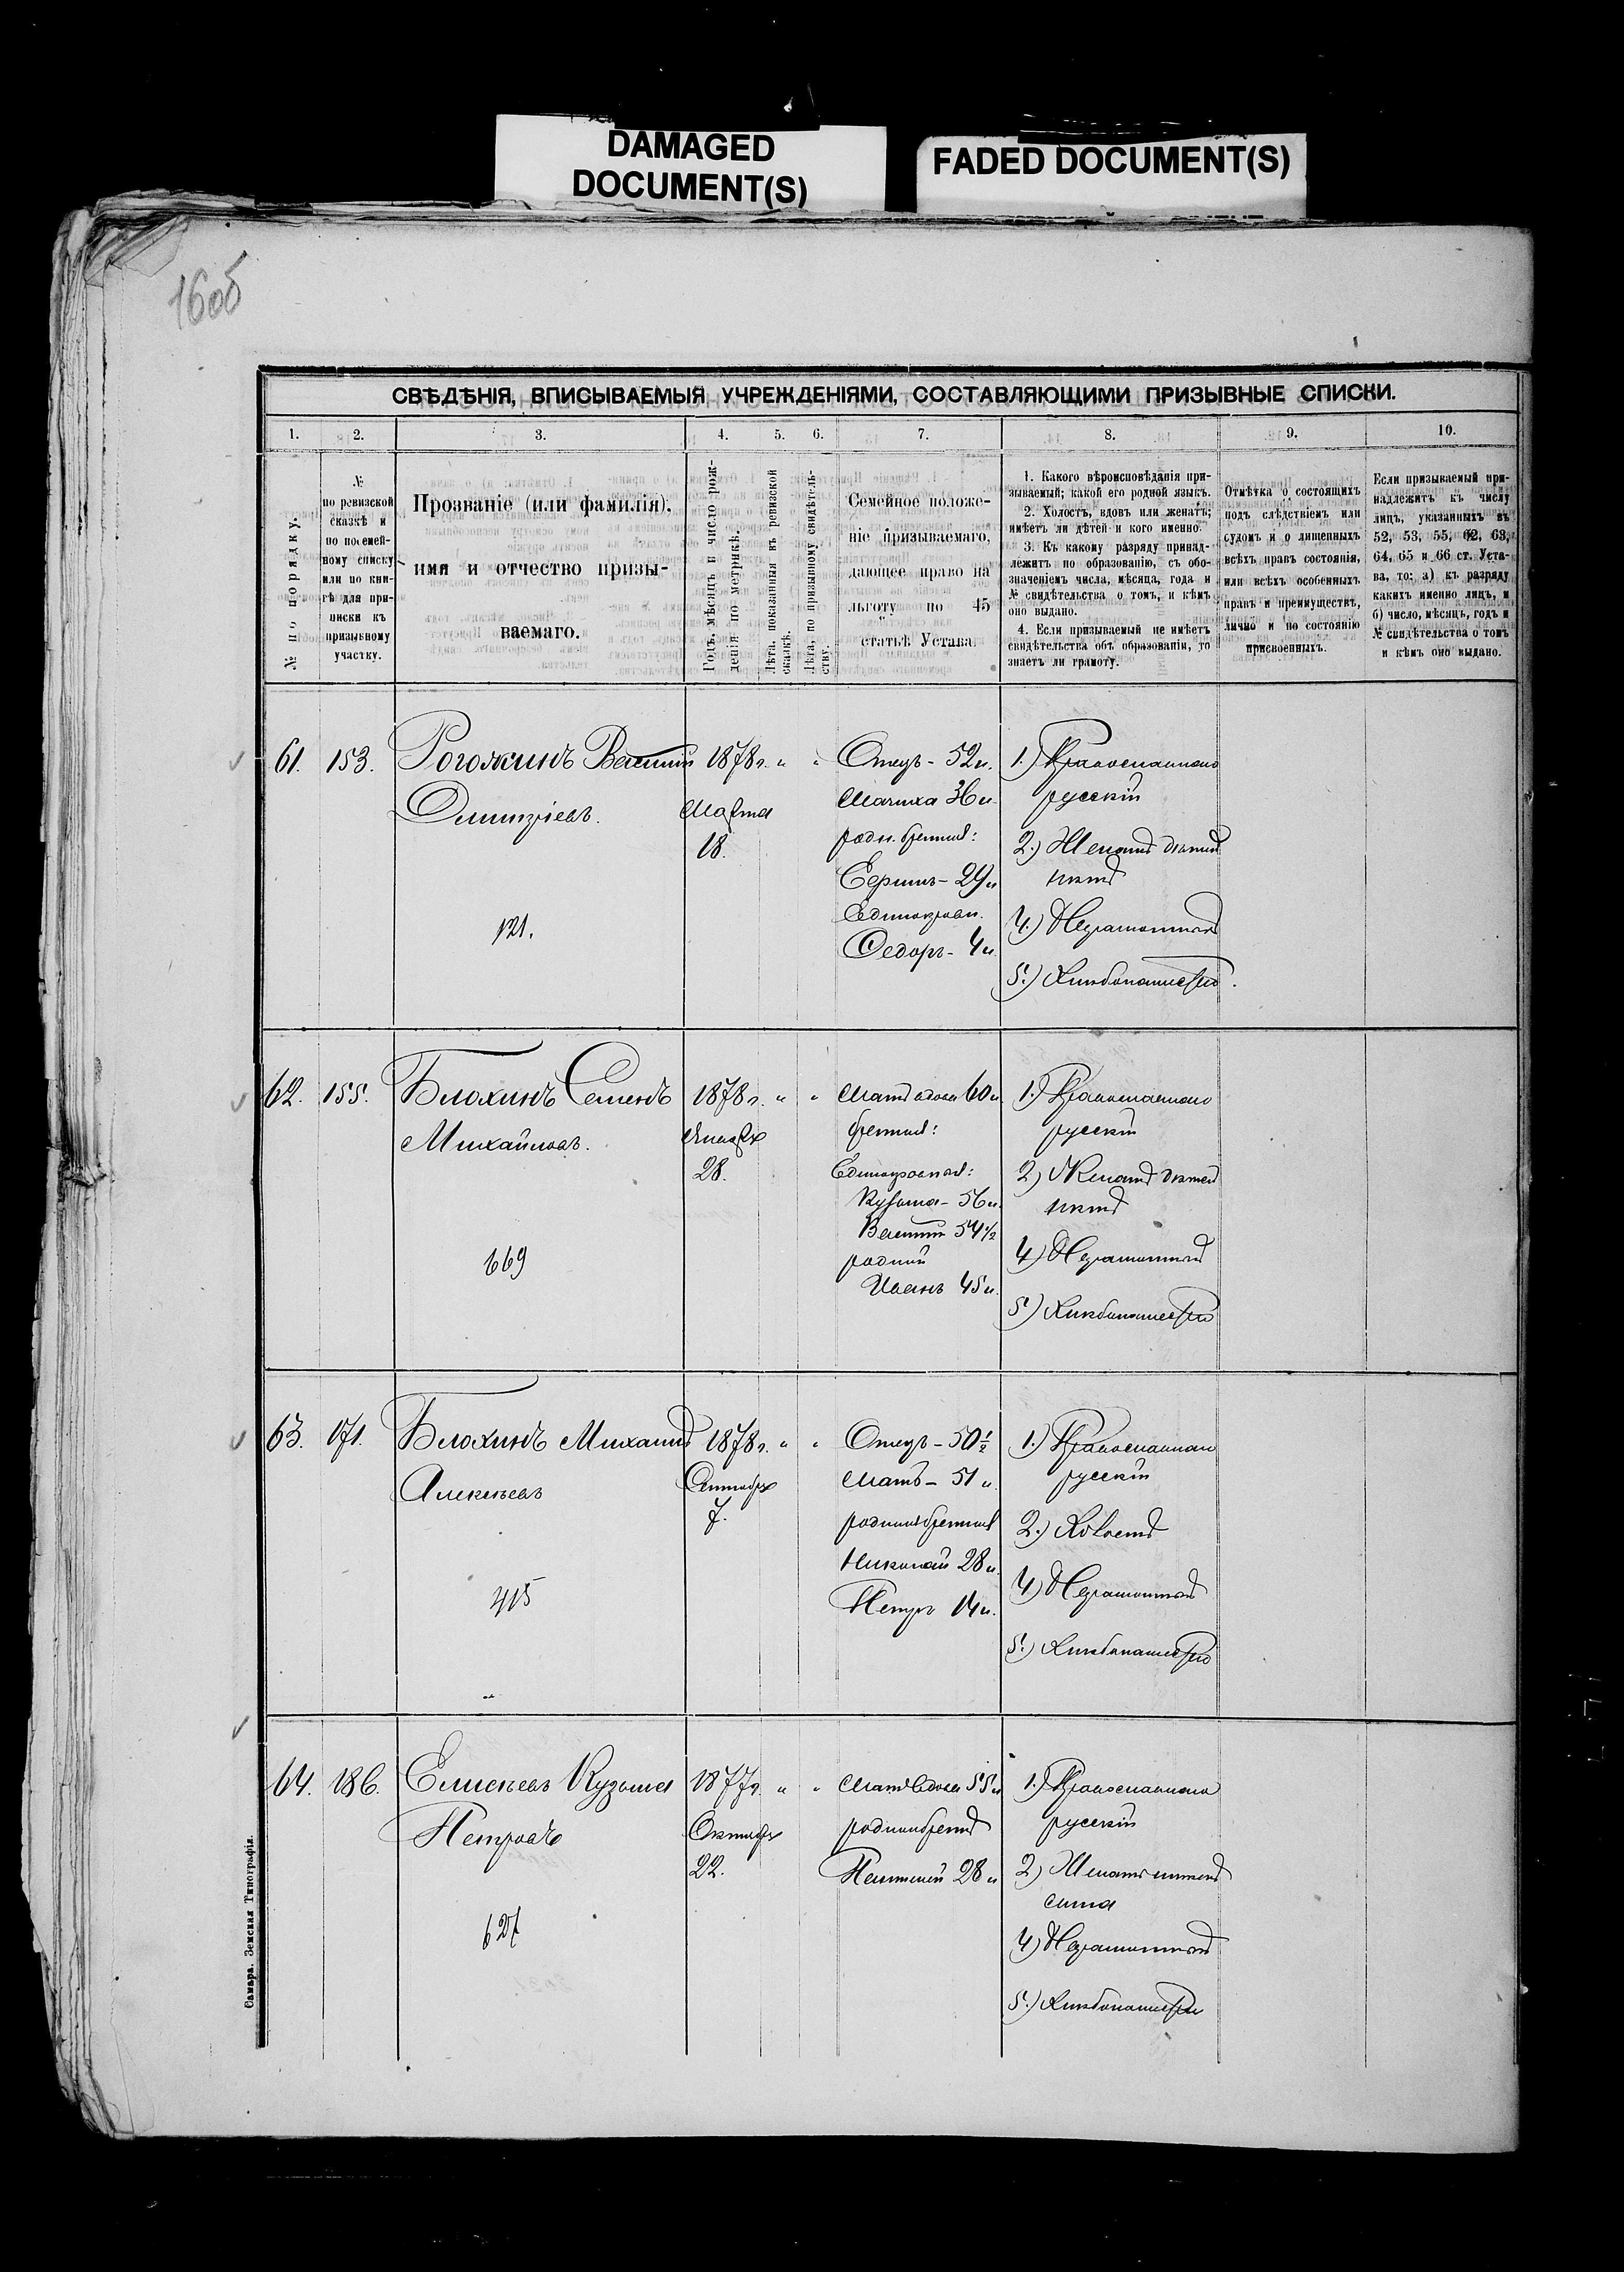 DAMAGED
DOCUMENT(S)
FADED DOCUMENT(S)
160б
СВѢДѢНІЯ, ВПИСЫВАЕМЫЯ УЧРЕЖДЕНІЯМИ, СОСТАВЛЯЮЩИМИ ПРИЗЫВНЫЕ СПИСКИ.
1. 2. 3. 4. 5. 6. 7. 8. 9. 10.
№ по порядку.
№
по ревизской
сказкѣ и
по посемей-
ному списку
или по кни-
гѣ для при-
писки къ
призывному
участку.
Прозваніе (или фамилія),
имя и отчество призы-
ваемаго.
Годъ, мѣсяцъ и число рож-
денія по метрикѣ.
Лѣта, показанныя въ ревизской
сказкѣ.
Лѣта, по призывному свидѣтель-
ству.
Семейное положе-
ніе призываемаго,
дающее право на
льготу по 45
статьѣ Устава.
1. Какого вѣроисповѣданія при-
зываемый; какой его родной языкъ.
2. Холостъ, вдовъ или женатъ;
имѣетъ ли дѣтей и кого именно.
3. Къ какому разряду принад-
лежитъ по образованію, съ обо-
значеніемъ числа, мѣсяца, года и
№ свидѣтельства о томъ, и кѣмъ
оно выдано.
4. Если призываемый не имѣетъ
свидѣтельства объ образованіи, то
знаетъ ли грамоту.
Отмѣтка о состоящихъ
подъ слѣдствіемъ или
судомъ и о лишенныхъ
всѣхъ правъ состоянія,
или всѣхъ особенныхъ
правъ и преимуществъ,
лично и по состоянію
присвоенныхъ.
Если призываемый при-
надлежитъ къ числу
лицъ, указанныхъ въ
52, 53, 55, 62, 63,
64, 65 и 66 ст. Уста-
ва, то: а) къ разряду
какихъ именно лицъ, и
б) число, мѣсяцъ, годъ и
№ свидѣтельства о томъ
и кѣмъ оно выдано.
61. 153.
Рогожинъ Василій
Дмитріевъ.
121.
1878 г. " "
Марта
18.
Отецъ - 52 л.
Мачиха 36 л.
родн. братья:
29 л
Единокровн.
Федоръ - 4 л.
1.) Православнаго
русскій
2.) Женатъ дѣтей
нѣтъ
4.) Неграмотный
5.) Хлѣбопашество.
62. 155.
Блохинъ Семенъ
Михайловъ.
669
1878 г. " "
Января
28.
Мать вдова 60 л
братья:
Единокровные:
Кузьма - 56 л.
Василій 54 1/2
родной
Иванъ 45 л.
1.) Православнаго
русскій
2) Женатъ дѣтей
нѣтъ
4) Неграмотный
5) Хлѣбопашество
63. 171.
Блохинъ Михаилъ
Алексѣевъ
415
1878 г. " "
Сентября
7.
Отецъ - 50 1/2
Мать - 51 л.
родные братья
Николай 28 л.
Петръ 14 л.
1.) Православнаго
русскій
2.) Холостъ
4) Неграмотный
5.) Хлѣбопашество
64. 186.
Елисѣевъ Кузьма
Петровъ
627
1877 г. " "
Октября
22.
Мать вдова 55 л
родной братъ
28 л
1.) Православнаго
русскій
2) Женатъ имѣетъ
сына
4) Неграмотный
5.) Хлѣбопашество
Самара. Земская Типографія.